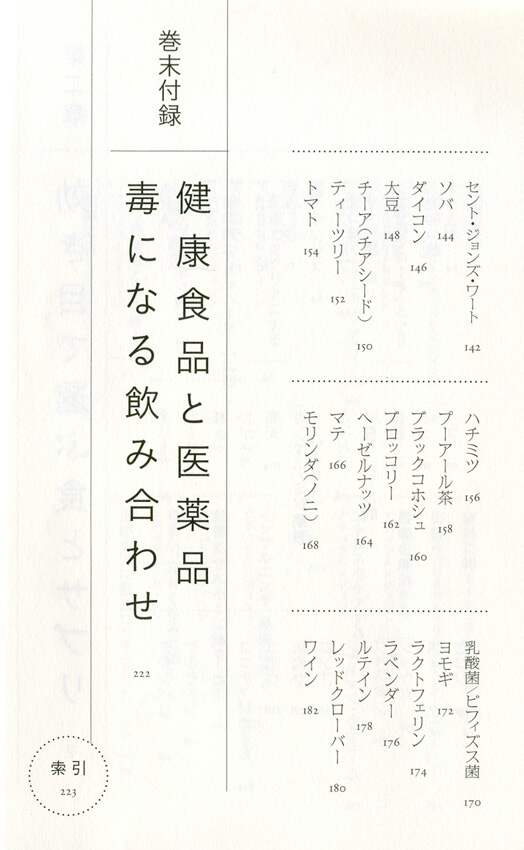 セント・ジョンズ・ワート 142
ソバ 144
ダイコン 146
大豆 148
チーア(チアシード) 150
ティーツリー 152
トマト 154
ハチミツ 156
プーアール茶 158
ブラックコホシュ 160
ブロッコリー 162
ヘーゼルナッツ 164
マテ 166
モリンダ(ノニ) 168
乳酸菌/ビフィズス菌 170
ヨモギ 172
ラクトフェリン 174
ラベンダー 176
ルテイン 178
レッドクローバー 180
ワイン 182
巻末付録
健康食品と医薬品
毒になる飲み合わせ 222
索引
223